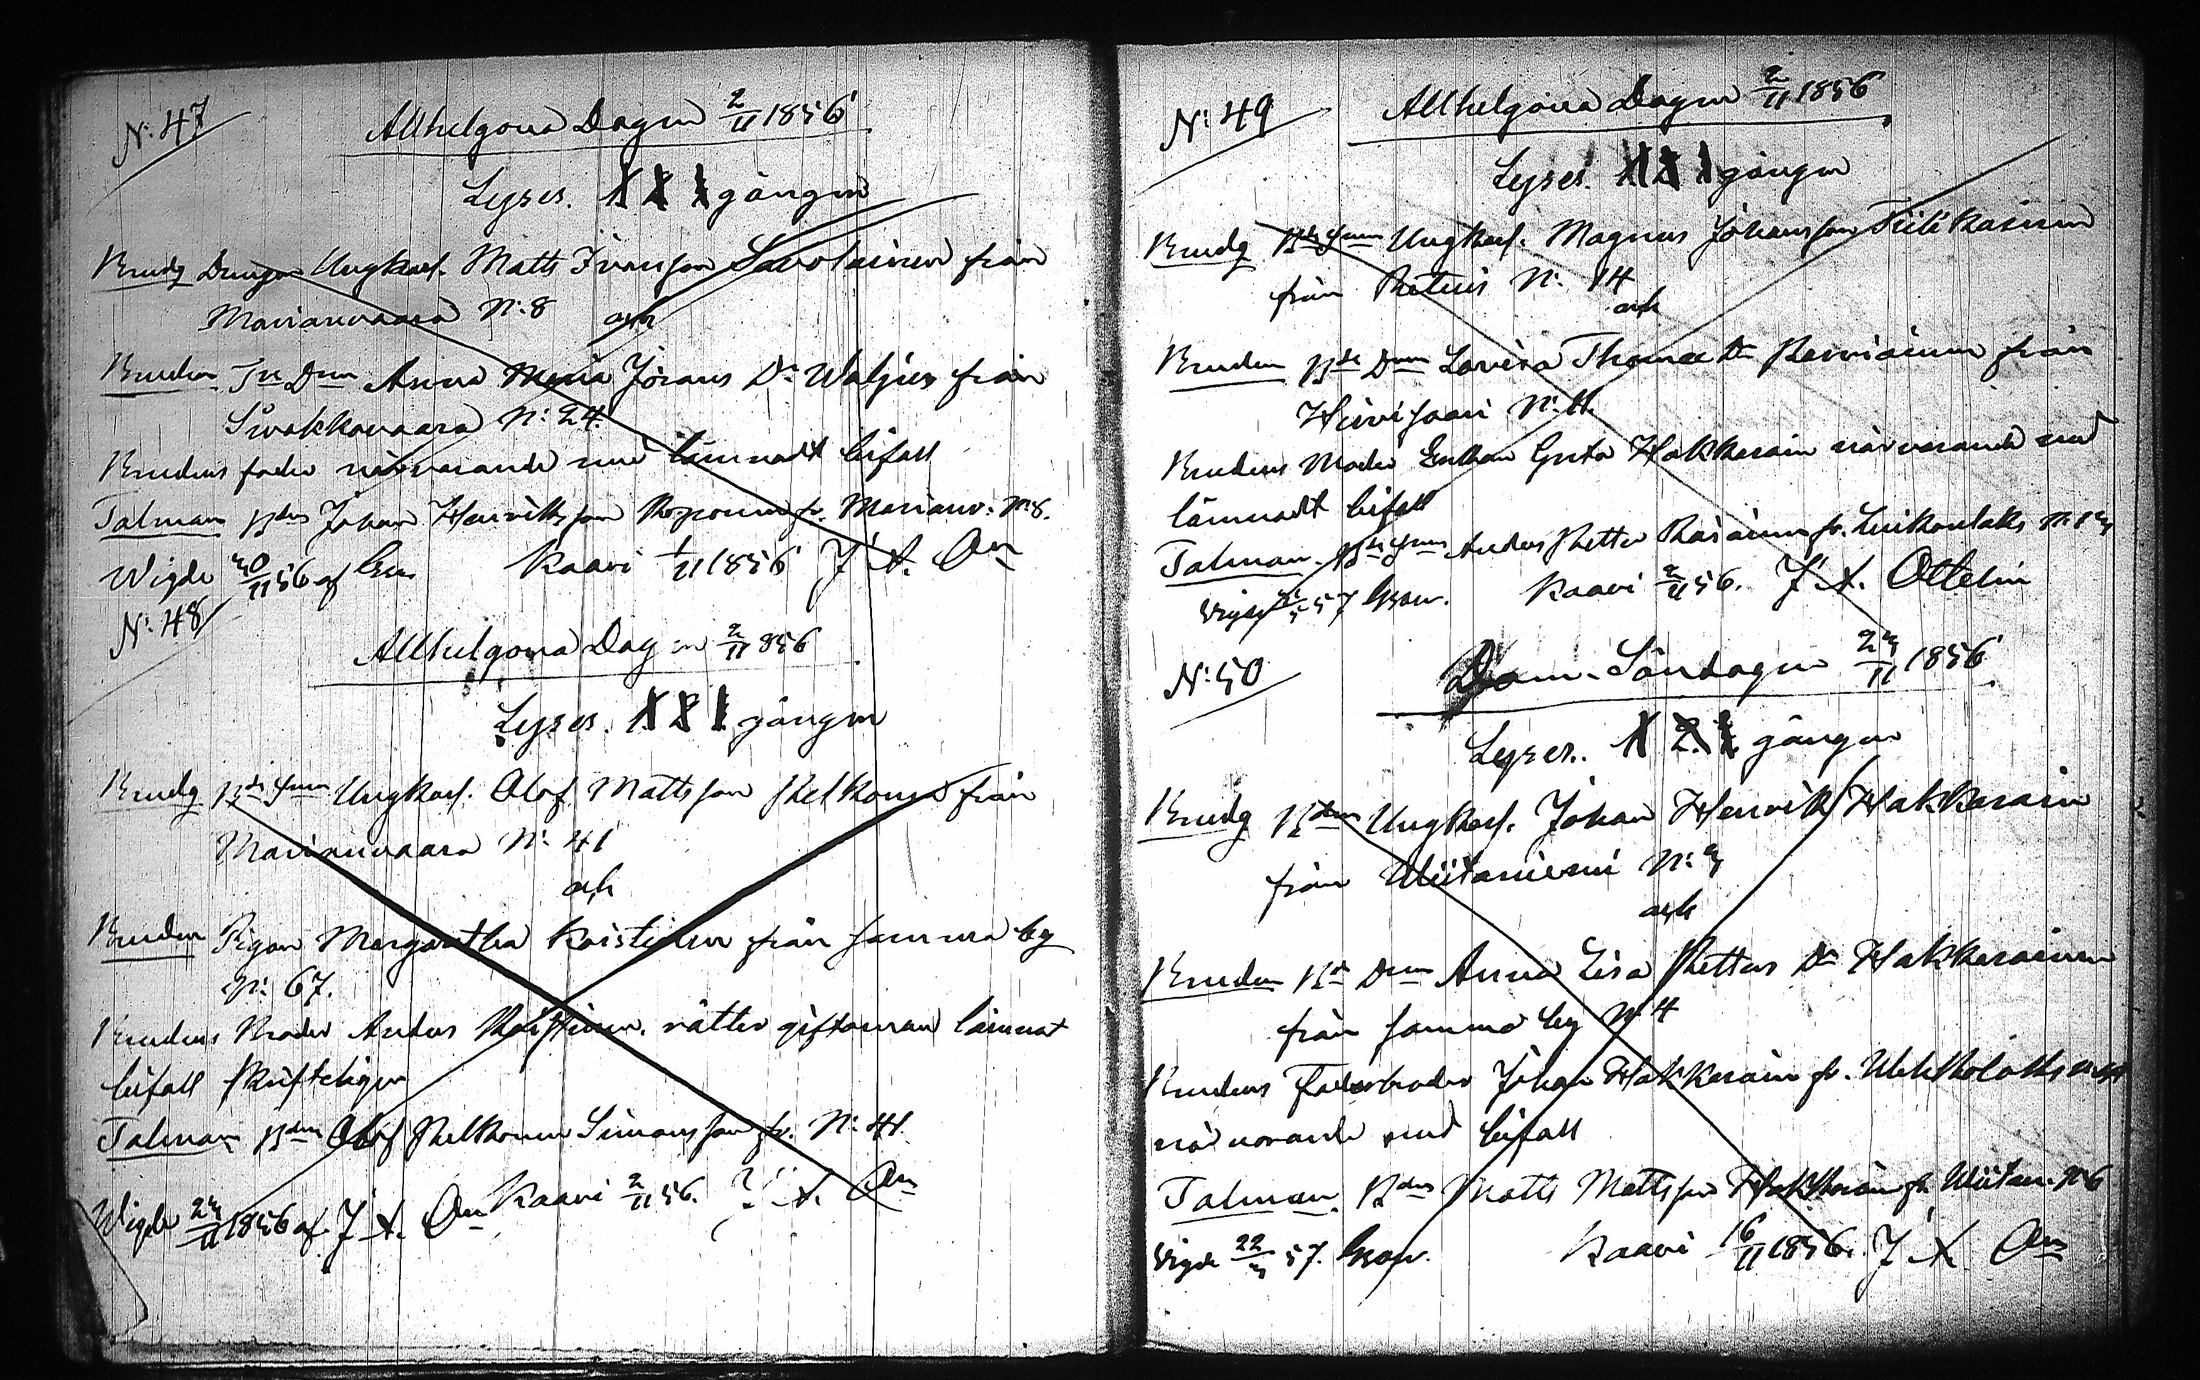 N: 47
Allhelgona Dagen 2/11 1856
Lyses. 1 2 3 gången
Brudg Drengen Ungkarl. Matts Ivarsson Savolainen från
Marianvaara N: 8 och
Bruden Tr. Dnn Anna Maria Jörans Dr Waljus från
Siwakkavaara N: 24.
Brudens fader närvarande med lämnadt bifall
Talman Bdn Johan Henriksson Roponen fr. Marianv. N:8.
Wigde 30/11 56 af
Kaavi 1/11 1856 J. A. On
N: 48
Allhelgona Dagen 2/11 1856
Lyses. 1 2 3 gången
Brudg Bdesonen Ungkarl. Olof Mattsson Pelkonen från
Marianvaara N: 41
och
Bruden Pigan Margaretha Koistinen från samma by
N: 67.
Brudens Broder Anders Koistinen. rätter giftoman lämnat
bifall skrifteligen
Talman Bdn Olof Pelkonen Simonsson fr. N: 41.
Kaavi 2/11 56. J. A. On
Wigde 23/11 1856 af J. A. On
N: 49
Allhelgona Dagen 2/11 1856
Lyses. 1 2 3 gången
Brudg Bdesonen Ungkarl. Magnus Johansson Tiilikainen
från N: 14
och
Bruden Bde Dnn Lovisa Thomae Dr från
Hirvisaari N: 11.
Brudens Moder Enkan Greta Hakkarain närvarande med
lämnadt bifall
Talman. Bdesonen Anders Petter Räsänen fr. Luikonlaks
Kaavi 2/11 56. J. A. Ottelin
Vigde 57
N: 50
Dom-Söndagen 23/11 1856
Lyses. 1 2 3 gången
Brudg Bdn Ungkarl. Johan Henrik Hakkarain
från Wiitaniemi N: 3
och
Bruden Bde Dnn Anna Lisa Petters Dr Hakkarainen
från samma by N 4
Brudens Faderbroder Johan Hakkarain fr.
närvarande med bifall
Talman. Bdn Matts Mattsson Hakkarain fr. Wiitan. N 6
Kaavi 16/11 1856. J. A. On
Vigde 22/3 57.